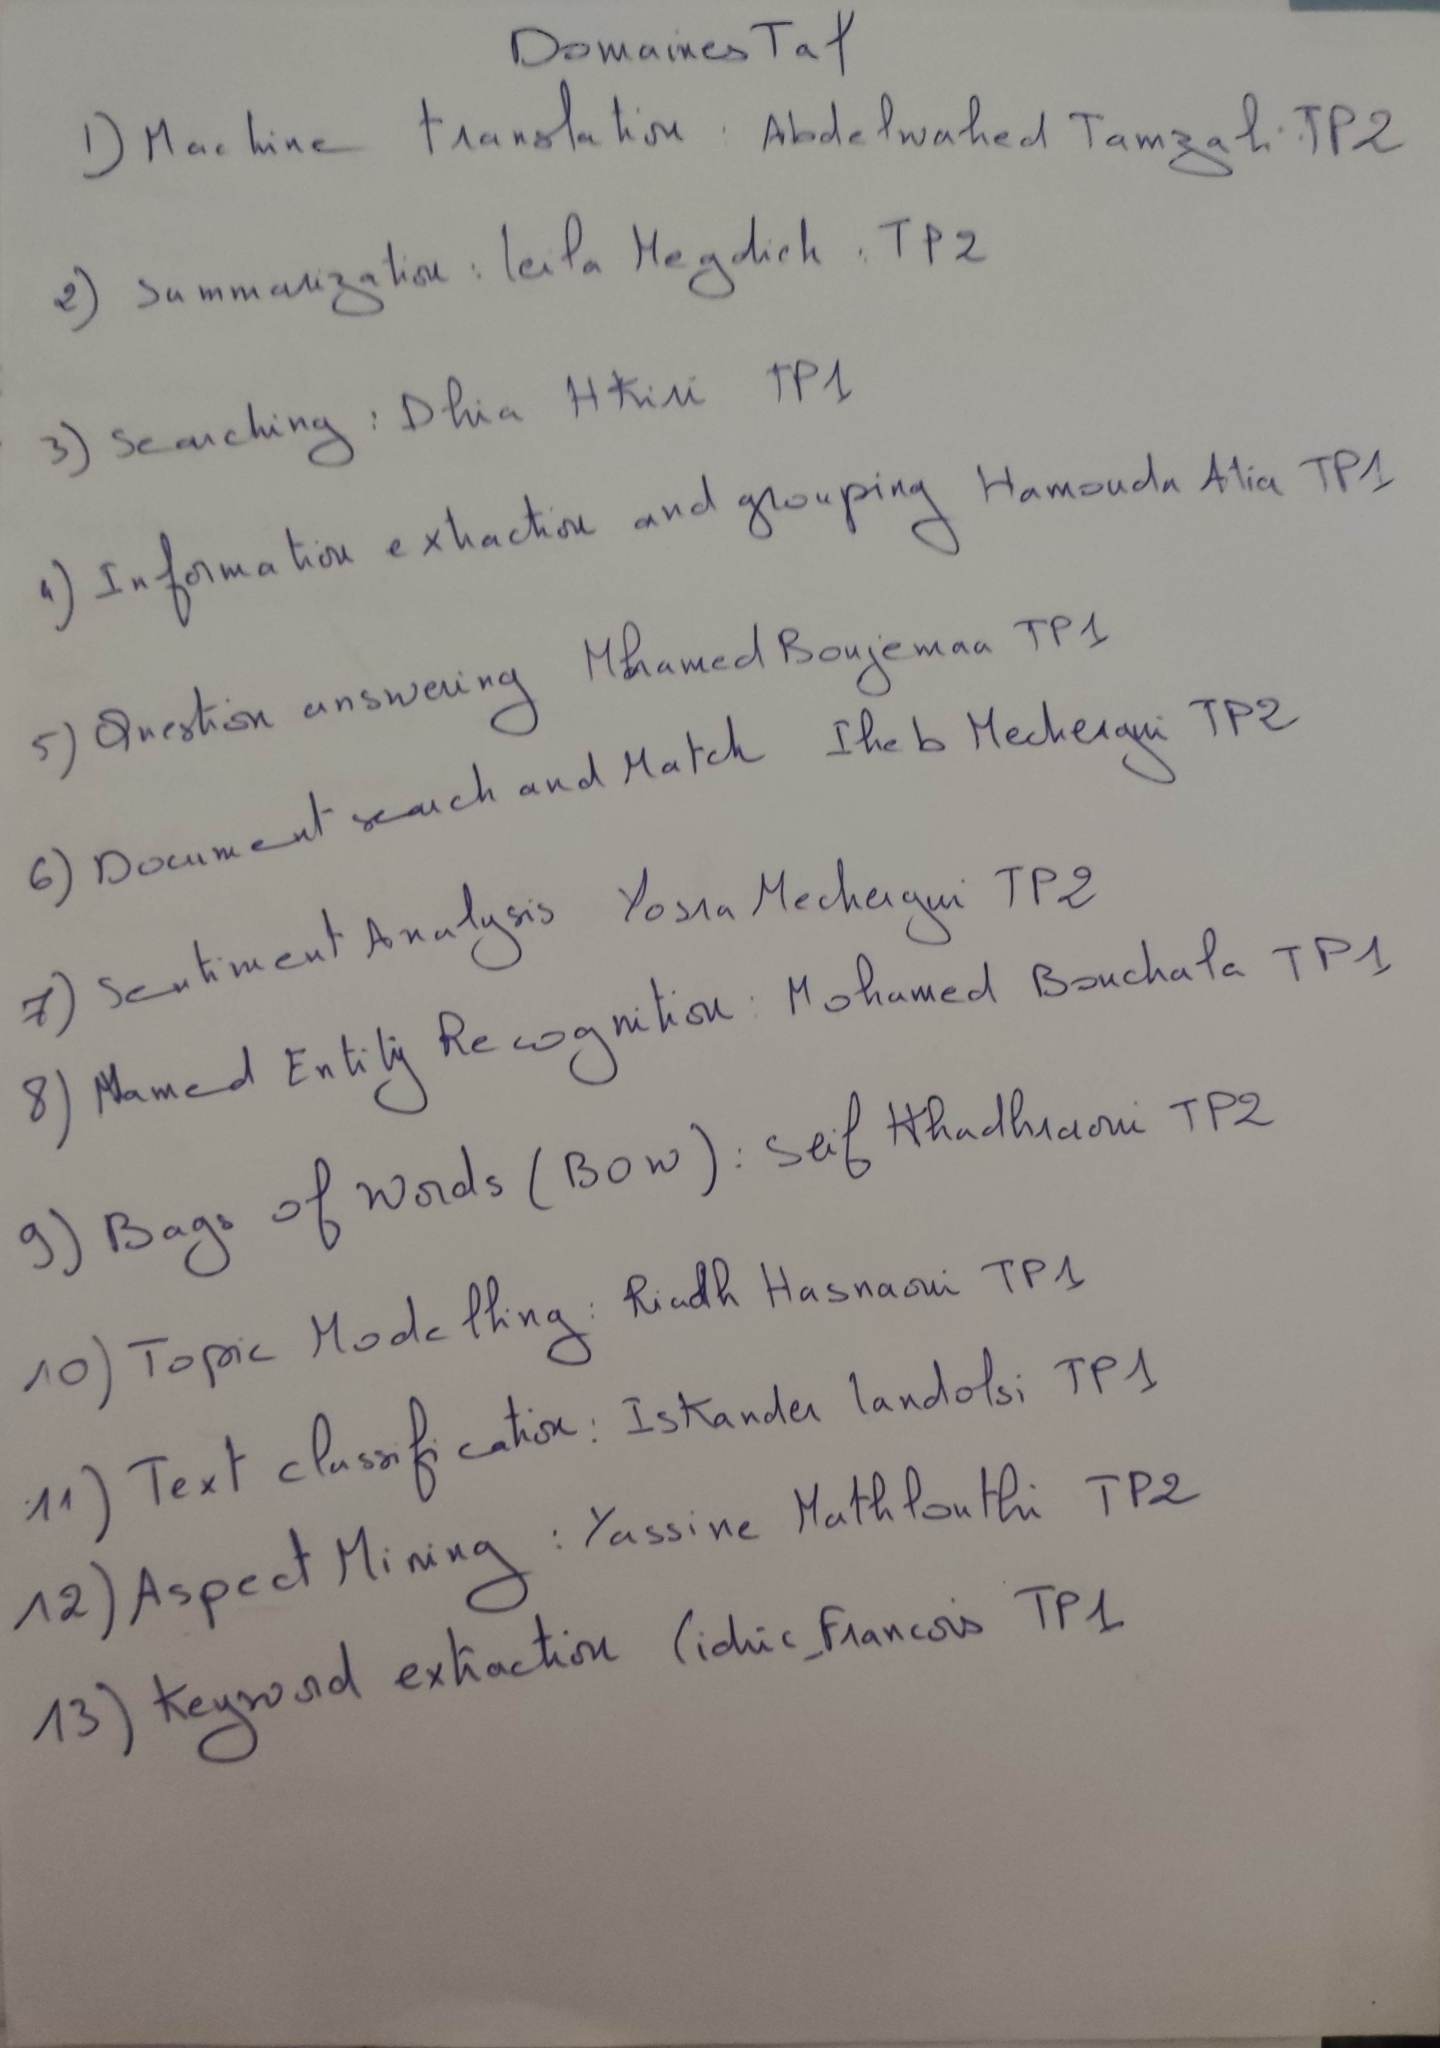 Domaines Taf
1) Machine translation : Abdelwahed Tamzali TP2
2) Summarization : leila Megdich : TP2
3) Searching : Dhia HKiri TP1
4) Information extraction and grouping Hamouda Alia TP1
5) Question answering Mhamed Boujemaa TP1
6) Document search and Match Iheb Mechergui TP2
7) Sentiment Analysis Yosra Mechergui TP2
8) Named Entity Recognition : Mohamed Bouchala TP1
9) Bags of Words (BOW) : Seif Khadhraoui TP2
10) Topic Modelling : Riadh Hasnaoui TP1
11) Text classification : Iskander landolsi TP1
12) Aspect Mining : Yassine Mathlouthi TP2
13) Keyword extraction Francois TP1